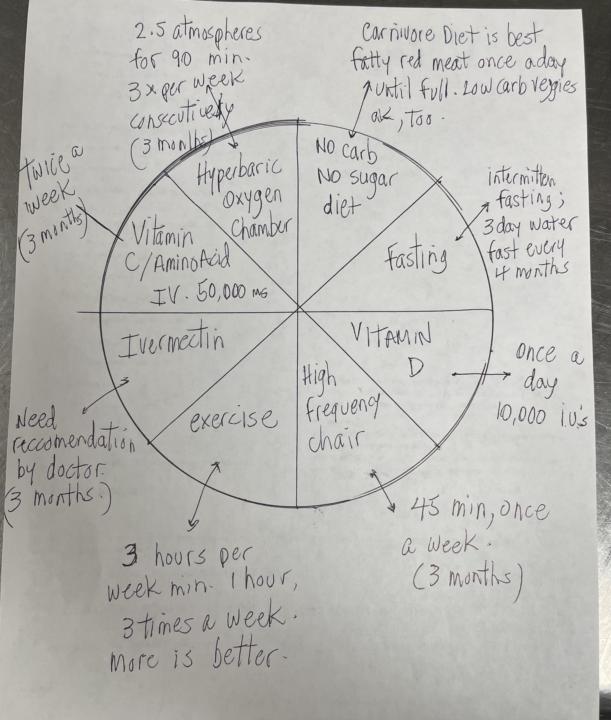 2.5 atmospheres
for 90 min.
3x per week
consecutively
(3 months)
Carnivore Diet is best
fatty red meat once a day
until full. Low carb veggies
ok, too.
twice a
week
(3 months)
Hyperbaric
Oxygen
Chamber
No carb
No sugar
diet
intermitten
fasting;
3 day water
fast every
4 months
Vitamin
C/Amino Acid
IV. 50,000 mg
fasting
Ivermectin
VITAMIN
D
Once a
day
10,000 i.u.'s
exercise
High
frequency
chair
Need
reccomendation
by doctor.
(3 months.)
3 hours per
week min. 1 hour,
3 times a week.
more is better.
45 min, once
a week.
(3 months)